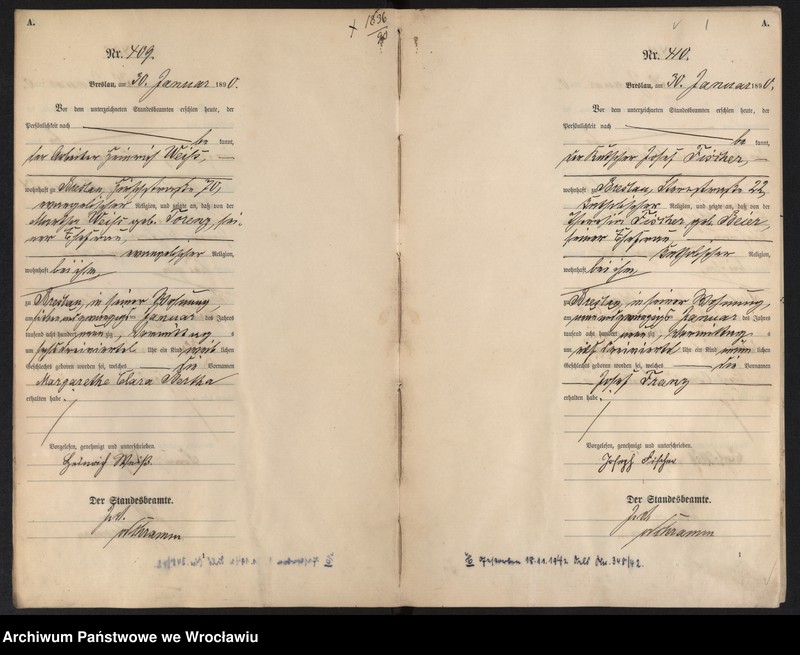 A.
1896
90
Nr. 409.
Breslau, am 30. Januar 1890.
Vor dem unterzeichneten Standesbeamten erschien heute, der
Persönlichkeit nach
be kannt,
der Arbeiter Heinrich Weiß,
wohnhaft zu Breslau, Hirschstraße 70,
evangelischer Religion, und zeigte an, daß von der
Weiß geb. Lorenz, sei-
ner Ehefrau,
evangelischer Religion,
wohnhaft bei ihm
zu Breslau, in seiner Wohnung,
am sieben und zwanzigsten Januar des Jahres
tausend acht hundert neunzig, Vormittag s
um sechs dreiviertel Uhr ein Kind weib lichen
Geschlechts geboren worden sei, welches die Vornamen
Margarethe Clara Bertha
erhalten habe.
Vorgelesen, genehmigt und unterschrieben.
Heinrich Weiß.
Der Standesbeamte.
A.
Nr. 410.
Breslau, am 30. Januar 1890.
Vor dem unterzeichneten Standesbeamten erschien heute, der
Persönlichkeit nach
be kannt,
der Kutscher Josef Fischer,
wohnhaft zu Breslau, 22,
katholischer Religion, und zeigte an, daß von der
Fischer geb. Beier,
seiner Ehefrau,
katholischer Religion,
wohnhaft bei ihm
zu Breslau, in seiner Wohnung,
am neun und zwanzigsten Januar des Jahres
tausend acht hundert neunzig, Vormittag s
um elf dreiviertel Uhr ein Kind männ lichen
Geschlechts geboren worden sei, welches die Vornamen
Josef Franz
erhalten habe.
Vorgelesen, genehmigt und unterschrieben.
Joseph Fischer
Der Standesbeamte.
1
Gestorben 18.11.1942 Nr. 348/42
Archiwum Państwowe we Wrocławiu